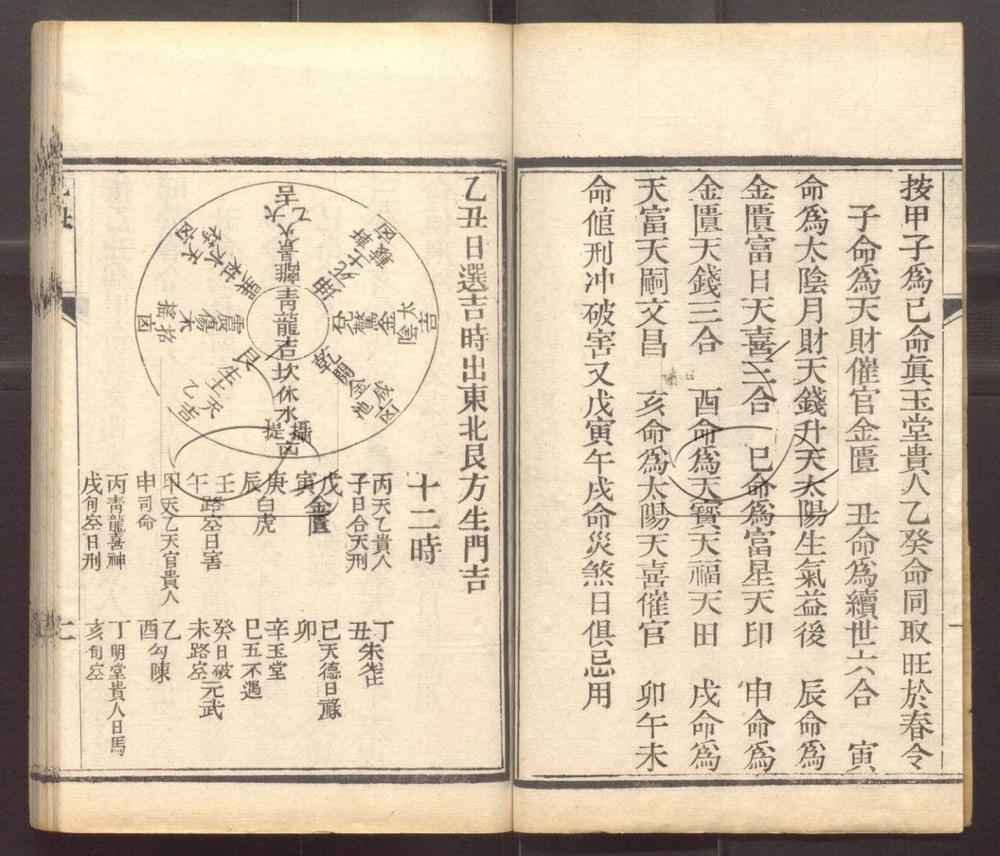 按甲子爲已命眞玉堂貴人乙癸命同取旺於春令
子命爲天財催官金匱 丑命爲續世六合 寅
命爲太陰月財天錢升天太陽生氣益後 辰命爲
金匱富日天喜三合 巳命爲富星天印 申命爲
金匱天錢三合 酉命爲天寳天福天田 戌命爲
天富天嗣文昌 亥命爲太陽天喜催官 卯午未
命値刑冲破害又戊寅午戌命災煞日俱忌用
乙丑日選吉時出東北艮方生門吉
青龍吉
坎休水
攝提凶
艮生土天乙吉
震傷木
招摇凶
離景火
太乙吉
坤死土
軒轅凶
兌驚金
太陰吉
乾開金
十二時
丙天乙貴人
子日合天刑
丁朱雀
丑
戊金匱
寅
己天德日祿
卯
庚白虎
辰
辛玉堂
巳五不遇
壬
午路空日害
癸日破
未路空元武
甲天乙天官貴人
申司命
乙勾陳
酉
丙青龍喜神
戌旬空日刑
丁明堂貴人日馬
亥旬空